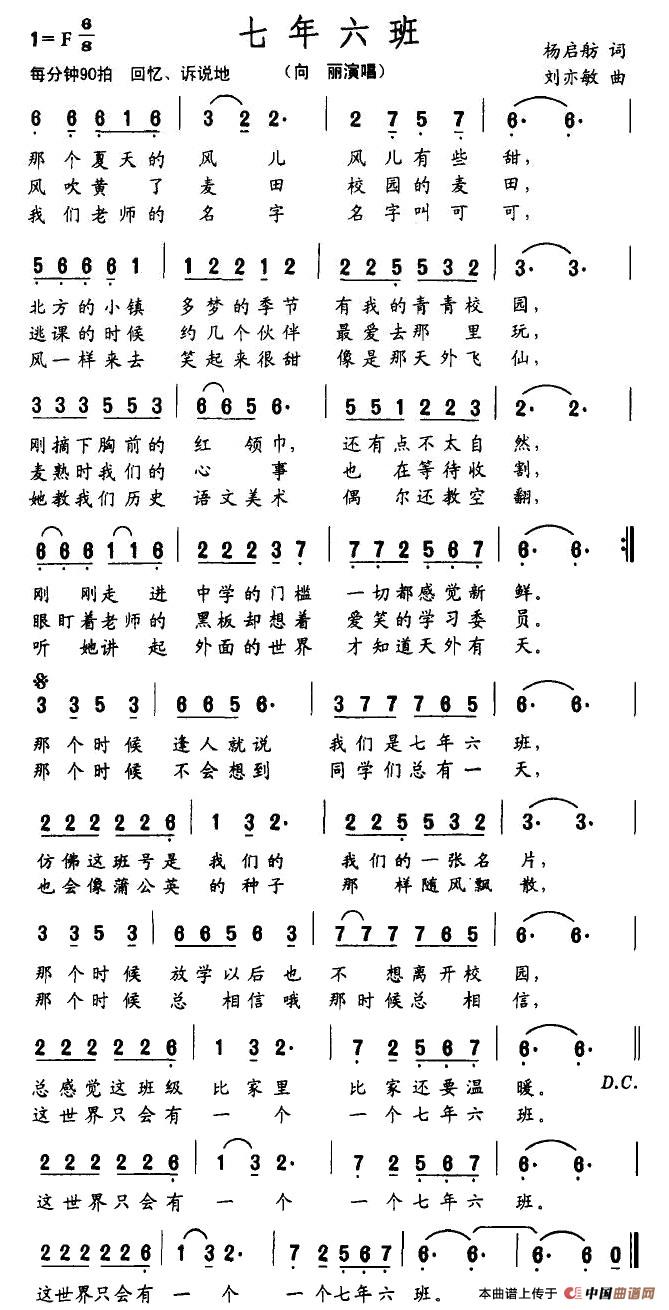 七年六班
1=F 6/8
杨启舫 词
每分钟90拍 回忆、诉说地 （向 丽演唱） 刘亦敏 曲
6 6 6 1 6 | 3 2 2· | 2 7 5 7 | 6· 6· |
那个夏天的 风儿 风儿有些甜，
风吹黄了 麦田 校园的麦田，
我们老师的 名字 名字叫可可，
5 6 6 6 1 | 1 2 2 1 2 | 2 2 5 5 3 2 | 3· 3· |
北方的小镇 多梦的季节 有我的青青校园，
逃课的时候 约几个伙伴 最爱去那里玩，
风一样来去 笑起来很甜 像是那天外飞仙，
3 3 3 5 5 3 | 6 6 5 6· | 5 5 1 2 2 3 | 2· 2· |
刚摘下胸前的 红领巾， 还有点不太自然，
麦熟时我们的 心事 也在等待收割，
她教我们历史 语文美术 偶尔还教空翻，
6 6 6 1 1 6 | 2 2 2 3 7 | 7 2 2 5 6 7 | 6· 6· :|
刚刚走进 中学的门槛 一切都感觉新鲜。
眼盯着老师的 黑板却想着 爱笑的学习委员。
听她讲起 外面的世界 才知道天外有天。
3 3 5 3 | 6 6 5 6· | 3 7 7 7 6 5 | 6· 6· |
那个时候 逢人就说 我们是七年六班，
那个时候 不会想到 同学们总有一天，
2 2 2 2 2 6 | 1 3 2· | 2 2 5 5 3 2 | 3· 3· |
仿佛这班号是 我们的 我们的一张名片，
也会像蒲公英 的种子 那样随风飘散，
3 3 5 3 | 6 6 5 6 3 | 7 7 7 7 6 5 | 6· 6· |
那个时候 放学以后也 不想离开校园，
那个时候 总相信哦 那时候总相信，
2 2 2 2 2 6 | 1 3 2· | 7 2 5 6 7 | 6· 6· ‖
总感觉这班级 比家里 比家还要温暖。 D.C.
这世界只会有 一个 一个七年六班。
2 2 2 2 2 6 | 1 3 2· | 7 2 5 6 7 | 6· 6· |
这世界只会有 一个 一个七年六班。
2 2 2 2 2 6 | 1 3 2· | 7 2 5 6 7 | 6· 6· | 6· 6 0 ‖
这世界只会有 一个 一个七年六班。
本曲谱上传于 中国曲谱网